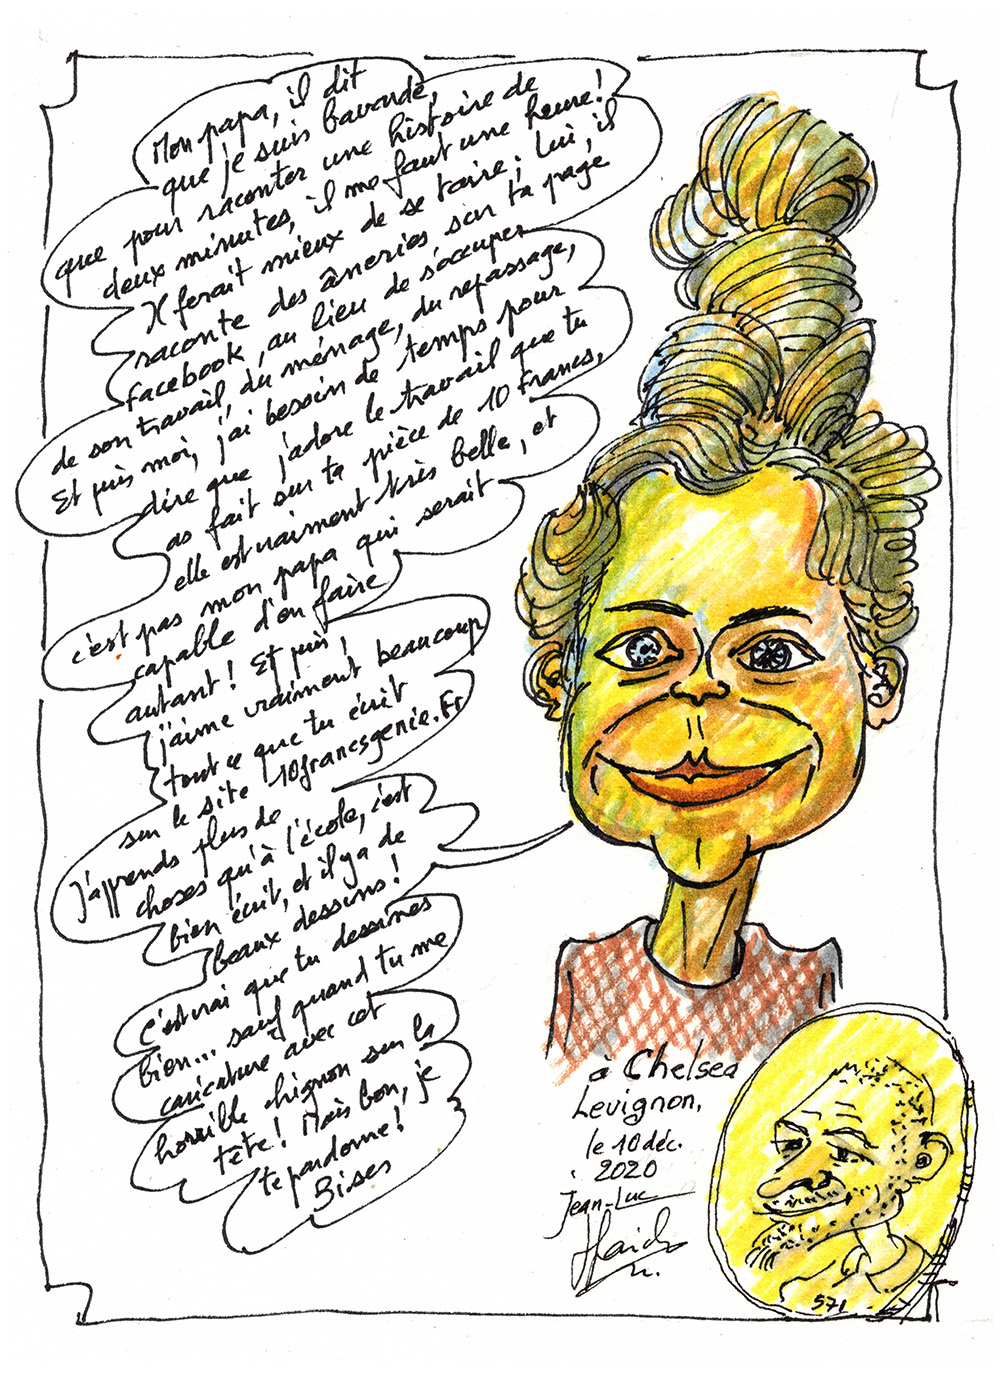 Mon papa, il dit
que je suis bavarde,
que pour raconter une histoire de
deux minutes, il me faut une heure!
Il ferait mieux de se taire; Lui, il
raconte des âneries sur ta page
facebook, au lieu de s'occuper
de son travail, du ménage, du repassage,
Et puis moi, j'ai besoin de temps pour
dire que j'adore le travail que tu
as fait sur ta pièce de 10 Francs,
elle est vraiment très belle, et
c'est pas mon papa qui serait
capable d'en faire
autant! Et puis,
j'aime vraiment beaucoup
tout ce que tu écrit
sur le site 10francsgenie.Fr
J'apprends plus de
choses qu'à l'école, c'est
bien écrit, et il y a de
beaux dessins!
C'est vrai que tu dessines
bien... sauf quand tu me
caricature avec cet
horrible chignon sur la
tête! Mais bon, je
te pardonne!
Bises
à Chelsea
Levignon,
le 10 déc.
2020
Jean-Luc
571